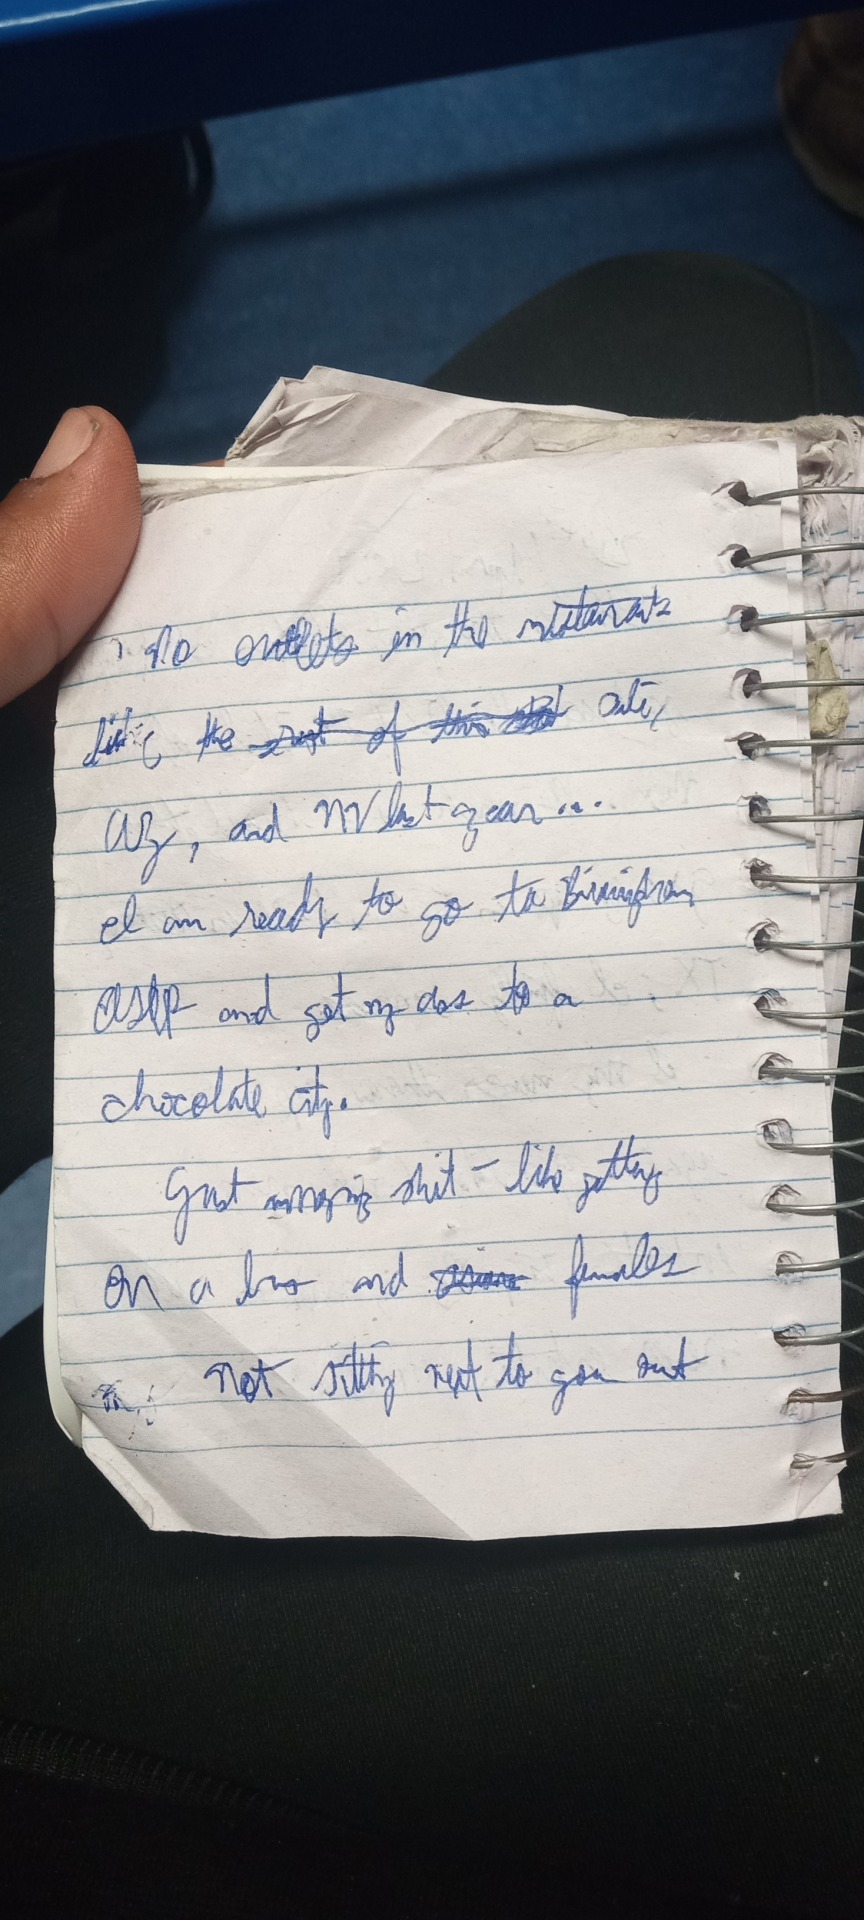 No outlets in the restaurants
like the rest of this
AZ, and NV last year...
I am ready to go to Birmingham
ASAP and get my to a
chocolate city.
Just annoying shit - like getting
on a bus and females
not sitting next to you out